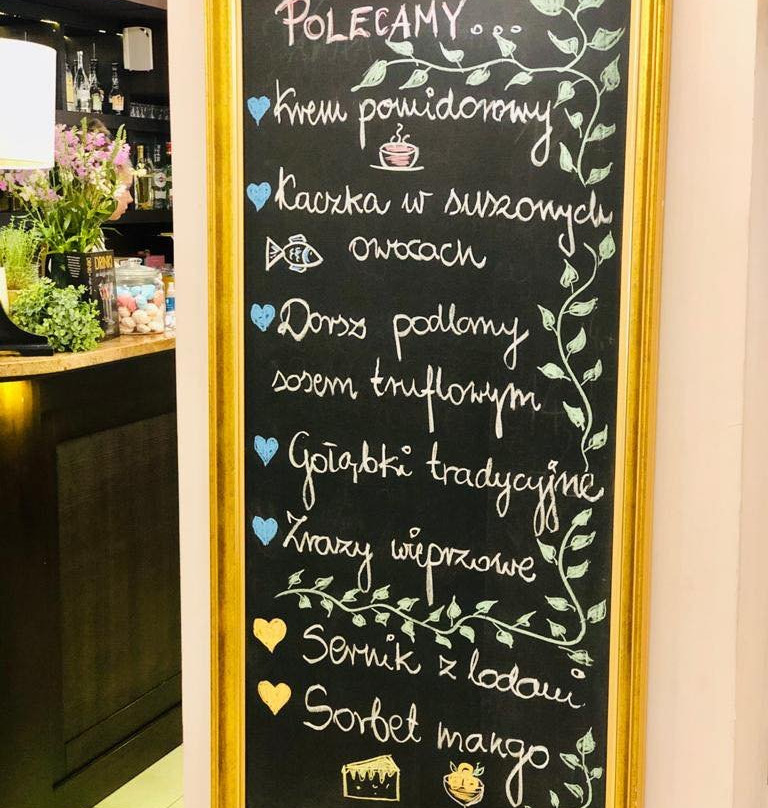 POLECAMY...
Krem pomidorowy
Kaczka w suszonych
owocach
Dorsz podlany
sosem truflowym
Gołąbki tradycyjne
Zrazy wieprzowe
Sernik z lodami
Sorbet mango